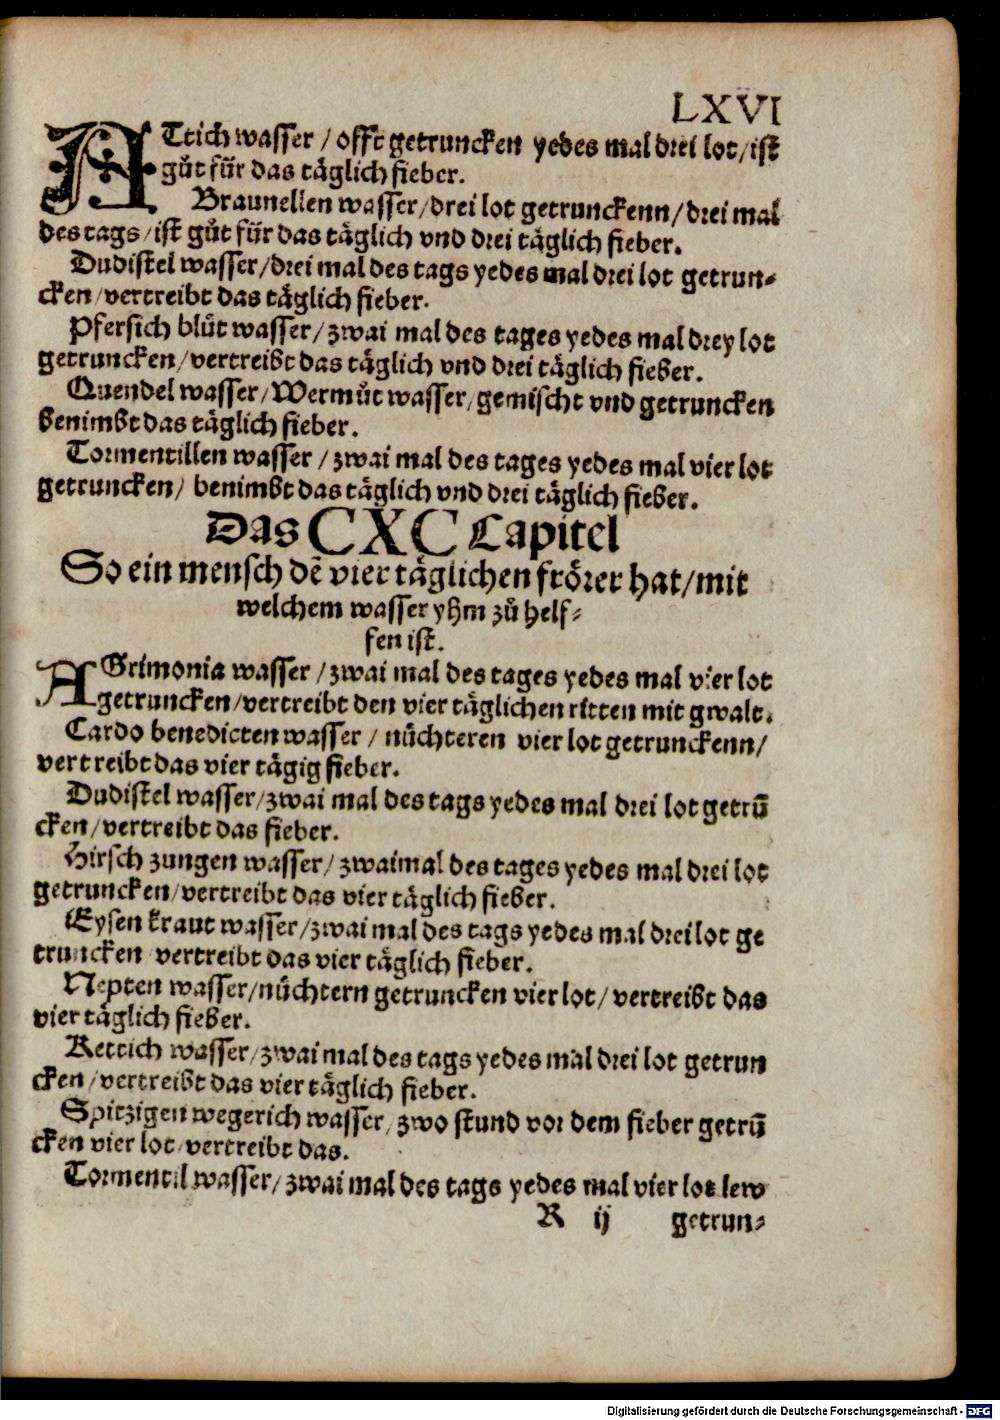 LXVI
ATtich wasser / offt getruncken yedes mal drei lot / ist
gůt für das täglich fieber.
Braunellen wasser / drei lot getrunckenn / drei mal
des tags / ist gůt für das täglich vnd drei täglich fieber.
Dudistel wasser / drei mal des tags yedes mal drei lot getrun⸗
cken / vertreibt das täglich fieber.
Pfersich blůt wasser / zwai mal des tages yedes mal drey lot
getruncken / vertreibt das täglich vnd drei täglich fieber.
Quendel wasser / Wermůt wasser / gemischt vnd getruncken
benimbt das täglich fieber.
Tormentillen wasser / zwai mal des tages yedes mal vier lot
getruncken / benimbt das täglich vnd drei täglich fieber.
Das CXC Capitel
So ein mensch dē vier täglichen frörer hat / mit
welchem wasser yhm zů helf⸗
fen ist.
AGrimonia wasser / zwai mal des tages yedes mal vier lot
getruncken / vertreibt den vier täglichen ritten mit gwalt.
Cardo benedicten wasser / nüchteren vier lot getrunckenn /
vertreibt das vier tägig fieber.
Dudistel wasser / zwai mal des tags yedes mal drei lot getrū
cken / vertreibt das fieber.
Hirsch zungen wasser / zwaimal des tages yedes mal drei lot
getruncken / vertreibt das vier täglich fieber.
Eysen kraut wasser / zwai mal des tags yedes mal drei lot ge
truncken vertreibt das vier täglich fieber.
Nepten wasser / nüchtern getruncken vier lot / vertreibt das
vier täglich fieber.
Rettich wasser / zwai mal des tags yedes mal drei lot getrun
cken / vertreibt das vier täglich fieber.
Spitzigen wegerich wasser / zwo stund vor dem fieber getrū
cken vier lot / vertreibt das.
Tormentil wasser / zwai mal des tags yedes mal vier lot lew
R ij getrun⸗
Digitalisierung gefördert durch die Deutsche Forschungsgemeinschaft - DFG